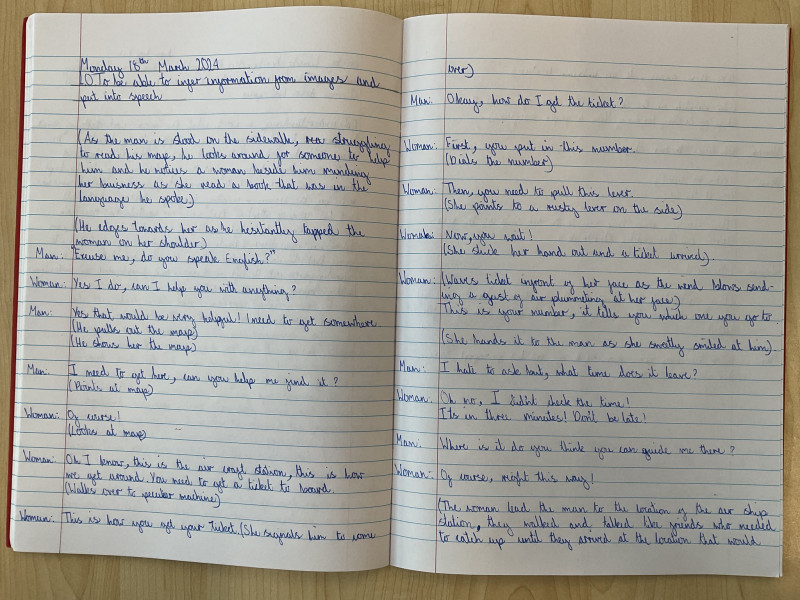 Monday 18th March 2024
LO To be able to infer information from images and
put into speech
(As the man is stood on the sidewalk, struggling
to read his map, he looks around for someone to help
him and he notices a woman beside him minding
her business as she read a book that was in the
language he spoke)
(He edges towards her as he hesitantly tapped the
woman on her shoulder)
Man: "Excuse me, do you speak English?"
Woman: Yes I do, can I help you with anything?
Man: Yes that would be very helpful! I need to get somewhere.
(He pulls out the map)
(He shows her the map)
Man: I need to get here, can you help me find it?
(Points at map)
Woman: Of course!
(Looks at map)
Woman: Oh I know, this is the air craft station, this is how
we get around. You need to get a ticket to board.
(Walks over to peculiar machine)
Woman: This is how you get your ticket. (She signals him to come
over)
Man: Okay, how do I get the ticket?
Woman: First, you put in this number.
(Dials the number)
Woman: Then, you need to pull this lever.
(She points to a rusty lever on the side)
Woman: Now, you wait!
(She stick her hand out and a ticket arrived).
Woman: (Waves ticket infront of her face as the wind blows send-
ing a gust of air plummeting at her face)
This is your number, it tells you which one you go to.
(She hands it to the man as she sweetly smiled at him).
Man: I hate to ask but, what time does it leave?
Woman: Oh no, I didn't check the time!
It's in three minutes! Don't be late!
Man: Where is it do you think you can guide me there?
Woman: Of course, right this way!
(The woman lead the man to the location of the air ship
station, they walked and talked like friends who needed
to catch up until they arrived at the location that would